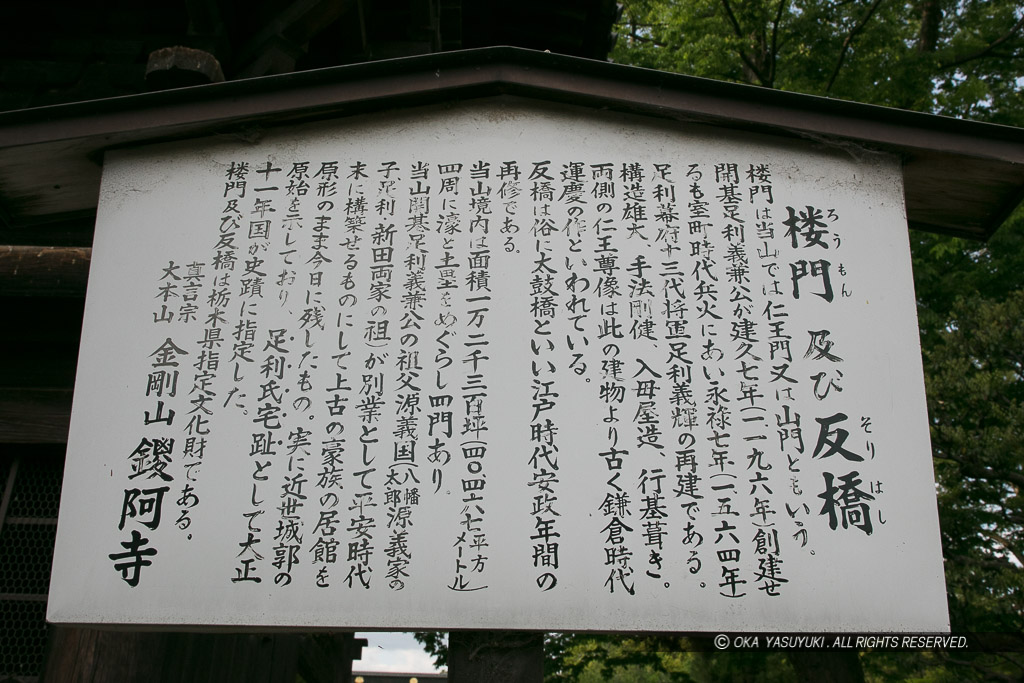 楼門 及び 反橋
ろうもん
そりはし
楼門は当山では仁王門又は山門ともいう。
開基足利義兼公が建久七年(一一九六年)創建せ
るも室町時代兵火にあい永禄七年(一五六四年)
足利幕府十三代将軍足利義輝の再建である。
構造雄大 手法剛健 入母屋造、行基葺き。
両側の仁王尊像は此の建物より古く鎌倉時代
運慶の作といわれている。
反橋は俗に太鼓橋といい江戸時代安政年間の
再修である。
当山境内は面積一万二千三百坪(四〇四六七平方メートル)
四周に濠と土塁をめぐらし四門あり。
当山開基足利義兼公の祖父源義国(八幡太郎源義家の
子足利・新田両家の祖)が別業として平安時代
末に構築せるものにして上古の豪族の居館を
原形のまま今日に残したもの。実に近世城郭の
原始を示しており、足利氏宅趾として大正
十一年国が史蹟に指定した。
楼門及び反橋は栃木県指定文化財である。
真言宗
大本山 金剛山 鑁阿寺
© OKA YASUYUKI. ALL RIGHTS RESERVED.